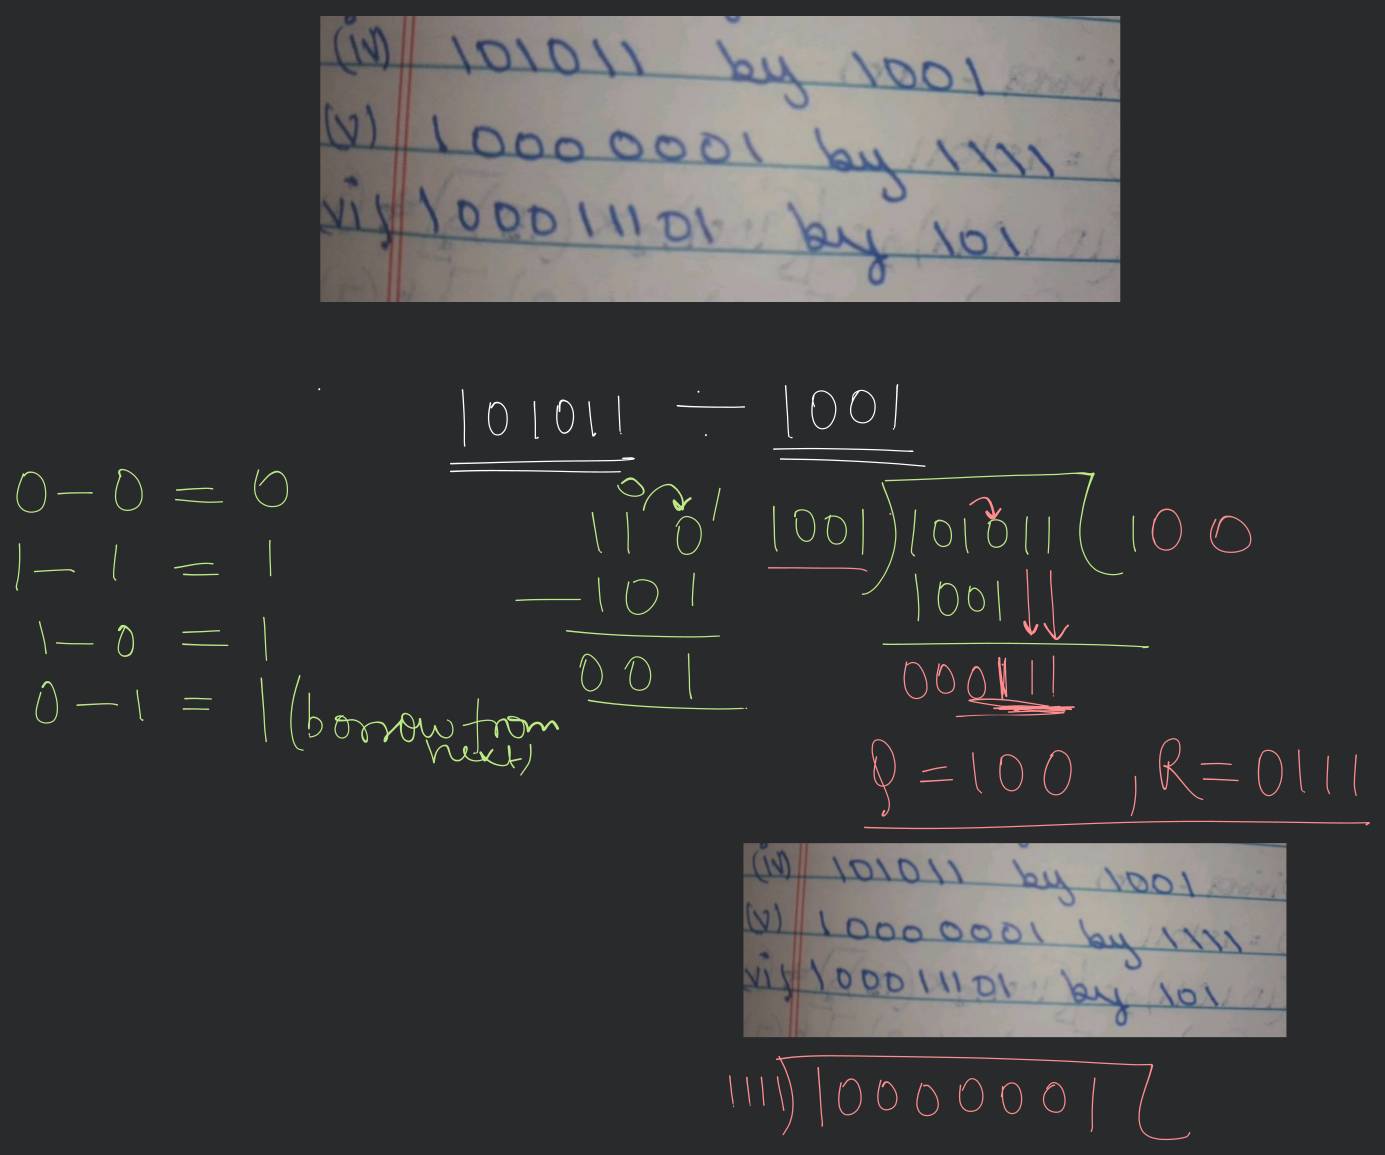 (iv) 101011 by 1001
(v) 10000001 by 1111
vi) 100011101 by 101
101011 ÷ 1001
0 - 0 = 0
1 - 1 = 1
1 - 0 = 1
0 - 1 = 1 (borrow from next)
0 1
110
- 101
001
1001) 101011 ( 100
1001
000111
Q = 100 , R = 0111
(iv) 101011 by 1001
(v) 10000001 by 1111
vi) 100011101 by 101
1111) 10000001 (